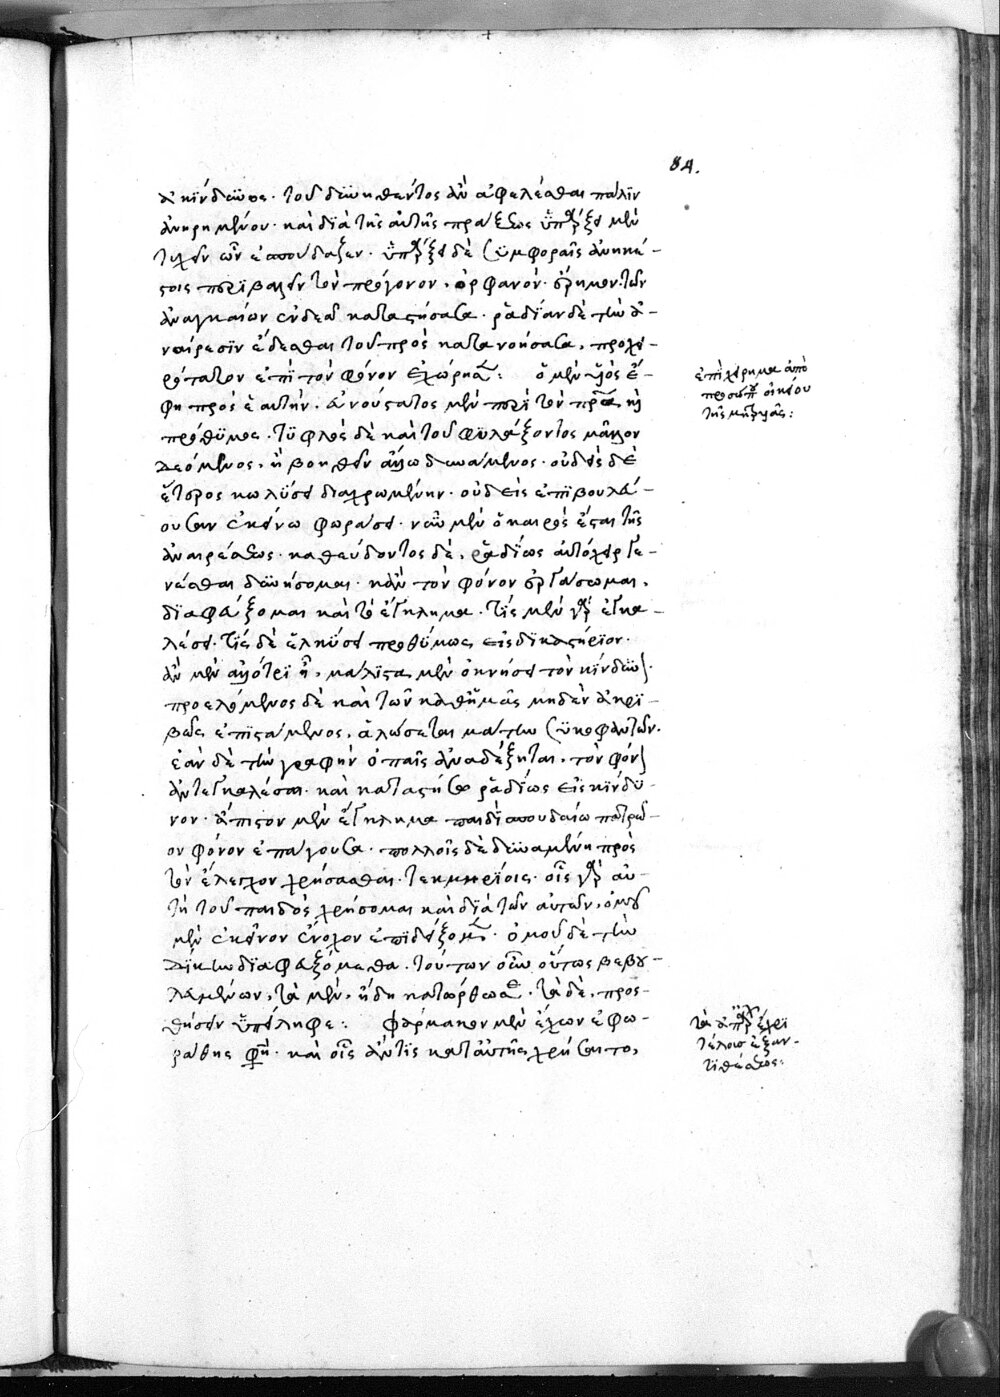 84.
ἀκϊνδύνως· τοῦ δυνηθέντος ἂν ἀφελέσθαι πάλϊν
ἀνῃρημένου· καὶ δϊὰ τῆς αὐτῆς πράξεως ὑπάρξει μὲν
τυχεῖν ὧν ἐσπούδαζεν· ὑπάρξει δὲ συμφοραῖς ἀνηκέ-
στοις περϊβαλεῖν τὸν πρόγονον, ὀρφανὸν· ἔρημον· τῶν
ἀναγκαίων ἐνδεᾶ καταστήσασα· ῥαδίαν δὲ τὴν ἀ-
ναίρεσϊν ἔσεσθαι τοῦ πρὸς κατανοήσασα, προχει-
ρότατον ἐπὶ τὸν φόνον ἐχώρησεν: ὁ μὲν υἱὸς ἔ-
φη πρὸς ἑαυτὴν, ἀπούστατος μὲν περὶ τὸν πατέρα κỳ
πρόθυμος, τυφλὸς δὲ καὶ τοῦ φυλάξοντος μᾶλλον
δεόμενος, ἢ βοηθεῖν ἄλλῳ δυνάμενος· οὐδεὶς δὲ
ἕτερος κωλύσει διαχρωμένην· οὐδεὶς ἐπϊβουλεύ-
ουσαν ἐκείνῳ φωράσει· νῦν μὲν ὁ καιρὸς ἔσται τῆς
ἀναιρέσεως· καθεύδοντος δὲ, ῥαδίως αὐτόχειρ γε-
νέσθαι δυνήσομαι· κἂν τὸν φόνον ἐργάσωμαι,
δϊαφεύξομαι καὶ τὸ ἔγκλημα· τίς μὲν γὰρ ἐγκα-
λέσει· τίς δὲ ἑλκύσει προθύμως εἰς δϊκαστήριον·
ἂν μὲν ἀλλότριος ᾖ, μάλϊστα μὲν ὀκνήσει τὸν κίνδυνον·
προελόμενος δὲ καὶ τῶν καθ' ἡμᾶς μηδὲν ἀκρϊ-
βῶς ἐπϊστάμενος, ἁλώσεται μάτην συκοφαντῶν·
ἐὰν δὲ τὴν γραφὴν ὁ παῖς ἀναδέξηται, τὸν φόνον
ἀντεγκαλέσαι· καὶ καταστήσω ῥαδίως εἰς κίνδυ-
νον· ἄπιστον μὲν ἔγκλημα παιδὶ σπουδαίῳ πατρῷ-
ον φόνον ἐπάγουσα· πολλοῖς δὲ δυναμένη πρὸς
τὸν ἔλεγχον χρήσασθαι τεκμηρίοις· οἷς γὰρ αὐ-
τὴ τοῦ παιδὸς χρήσομαι καὶ δϊὰ τῶν αὐτῶν, ὁμοῦ
μὲν ἐκεῖνον ἔνοχον ἐπϊδείξομαι· ὁμοῦ δὲ τὴν
δίκην δϊαφεύξομαι. τούτων οὖν οὕτως βεβου-
λευμένων, τὰ μὲν, ἤδη κατώρθωσε· τὰ δὲ, προσ-
θήσειν ὑπείληφε: φάρμακον μὲν ἔχων ἐφω-
ράθης φησὶ· καὶ οἷς ἄν τις κατ' αὐτῆς χρήσαιτο,
ἐπιχείρημα ἀπὸ
προσώπου οἰκείου
τῆς μητρυιᾶς:
τὰ ἀπ' ἀρχῆς ἄχρϊ
τέλους ἐξ ἀν-
τϊθέσεως: